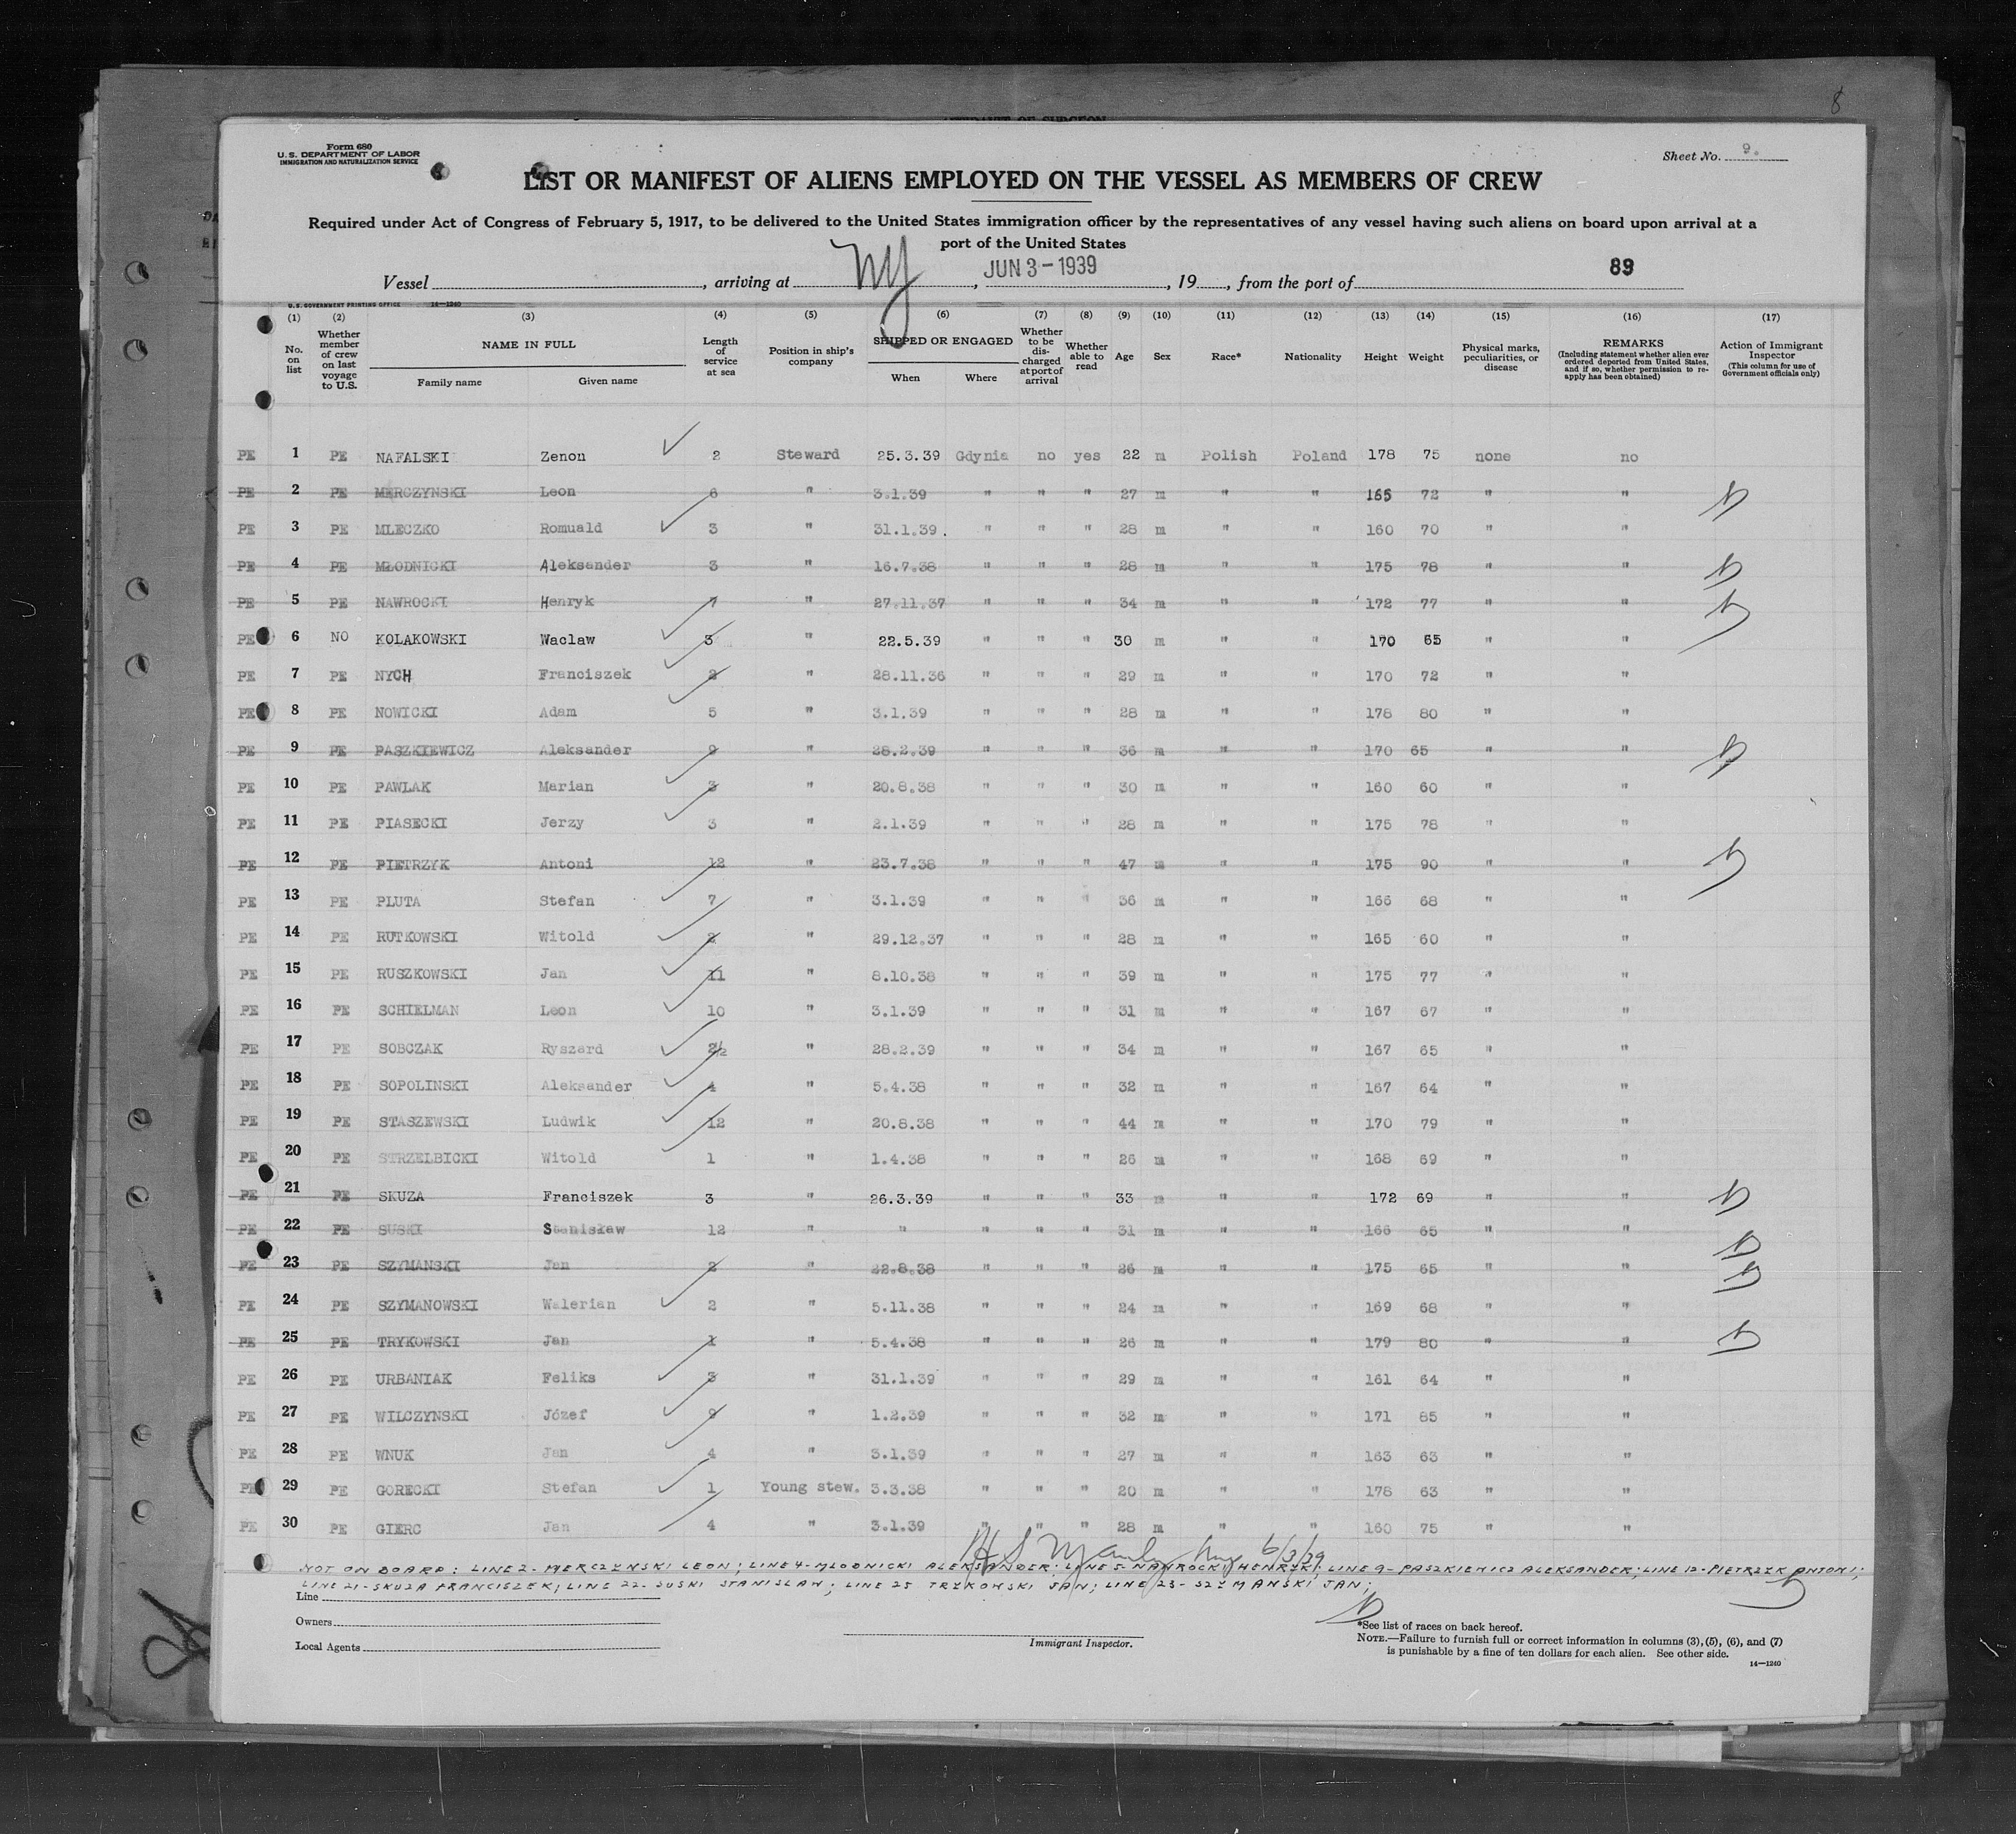 8
AFFIDAVIT OF SURGEON
Form 680
U. S. DEPARTMENT OF LABOR
IMMIGRATION AND NATURALIZATION SERVICE
Sheet No. 9.
LIST OR MANIFEST OF ALIENS EMPLOYED ON THE VESSEL AS MEMBERS OF CREW
Required under Act of Congress of February 5, 1917, to be delivered to the United States immigration officer by the representatives of any vessel having such aliens on board upon arrival at a
port of the United States
89
Vessel , arriving at NY , JUN 3 - 1939 , 19 , from the port of
U. S. GOVERNMENT PRINTING OFFICE 14—1240
(1) (2) (3) (4) (5) (6) (7) (8) (9) (10) (11) (12) (13) (14) (15) (16) (17)
No. on list Whether member of crew on last voyage to U.S. NAME IN FULL Family name Given name Length of service at sea Position in ship's company SHIPPED OR ENGAGED When Where Whether to be discharged at port of arrival Whether able to read Age Sex Race* Nationality Height Weight Physical marks, peculiarities, or disease REMARKS (Including statement whether alien ever ordered deported from United States, and if so, whether permission to reapply has been obtained) Action of Immigrant Inspector (This column for use of Government officials only)
PE 1 PE NAFALSKI Zenon 2 Steward 25.3.39 Gdynia no yes 22 m Polish Poland 178 75 none no
PE 2 PE MERCZYNSKI Leon 6 " 3.1.39 " " " 27 m " " 165 72 " "
PE 3 PE MLECZKO Romuald 3 " 31.1.39. " " " 28 m " " 160 70 " "
PE 4 PE MŁODNICKI Aleksander 3 " 16.7.38 " " " 28 m " " 175 78 " "
PE 5 PE NAWROCKI Henryk 7 " 27.11.37 " " " 34 m " " 172 77 " "
PE 6 NO KOLAKOWSKI Waclaw 3 " 22.5.39 " " " 30 m " " 170 65 " "
PE 7 PE NYCH Franciszek 2 " 28.11.36 " " " 29 m " " 170 72 " "
PE 8 PE NOWICKI Adam 5 " 3.1.39 " " " 28 m " " 178 80 " "
PE 9 PE PASZKIEWICZ Aleksander 9 " 28.2.39 " " " 36 m " " 170 65 " "
PE 10 PE PAWLAK Marian 3 " 20.8.38 " " " 30 m " " 160 60 " "
PE 11 PE PIASECKI Jerzy 3 " 2.1.39 " " " 28 m " " 175 78 " "
PE 12 PE PIETRZYK Antoni 12 " 23.7.38 " " " 47 m " " 175 90 " "
PE 13 PE PLUTA Stefan 7 " 3.1.39 " " " 36 m " " 166 68 " "
PE 14 PE RUTKOWSKI Witold 2 " 29.12.37 " " " 28 m " " 165 60 " "
PE 15 PE RUSZKOWSKI Jan 11 " 8.10.38 " " " 39 m " " 175 77 " "
PE 16 PE SCHIELMAN Leon 10 " 3.1.39 " " " 31 m " " 167 67 " "
PE 17 PE SOBCZAK Ryszard 2½ " 28.2.39 " " " 34 m " " 167 65 " "
PE 18 PE SOPOLINSKI Aleksander 4 " 5.4.38 " " " 32 m " " 167 64 " "
PE 19 PE STASZEWSKI Ludwik 12 " 20.8.38 " " " 44 m " " 170 79 " "
PE 20 PE STRZELBICKI Witold 1 " 1.4.38 " " " 26 m " " 168 69 " "
PE 21 PE SKUZA Franciszek 3 " 26.3.39 " " " 33 m " " 172 69 " "
PE 22 PE SUSKI Stanisław 12 " " " " " 31 m " " 166 65 " "
PE 23 PE SZYMANSKI Jan 2 " 22.8.38 " " " 26 m " " 175 65 " "
PE 24 PE SZYMANOWSKI Walerian 2 " 5.11.38 " " " 24 m " " 169 68 " "
PE 25 PE TRYKOWSKI Jan 1 " 5.4.38 " " " 26 m " " 179 80 " "
PE 26 PE URBANIAK Feliks 3 " 31.1.39 " " " 29 m " " 161 64 " "
PE 27 PE WILCZYNSKI Józef 9 " 1.2.39 " " " 32 m " " 171 85 " "
PE 28 PE WNUK Jan 4 " 3.1.39 " " " 27 m " " 163 63 " "
PE 29 PE GORECKI Stefan 1 Young stew. 3.3.38 " " " 20 m " " 178 63 " "
PE 30 PE GIERC Jan 4 " 3.1.39 " " " 28 m " " 160 75 " "
6/3/39
NOT ON BOARD: LINE 2- MERCZYNSKI LEON; LINE 4-MLODNICKI ALEKSANDER; LINE 5-NAWROCKI HENRYK; LINE 9- PASZKIEWICZ ALEKSANDER; LINE 12-PIETRZYK ANTONI;
LINE 21-SKUZA FRANCISZEK; LINE 22-SUSKI STANISLAW; LINE 25 TRYKOWSKI JAN; LINE 23-SZYMANSKI JAN;
Line
Owners
Local Agents
Immigrant Inspector.
*See list of races on back hereof.
NOTE.—Failure to furnish full or correct information in columns (3), (5), (6), and (7)
is punishable by a fine of ten dollars for each alien. See other side.
14—1240